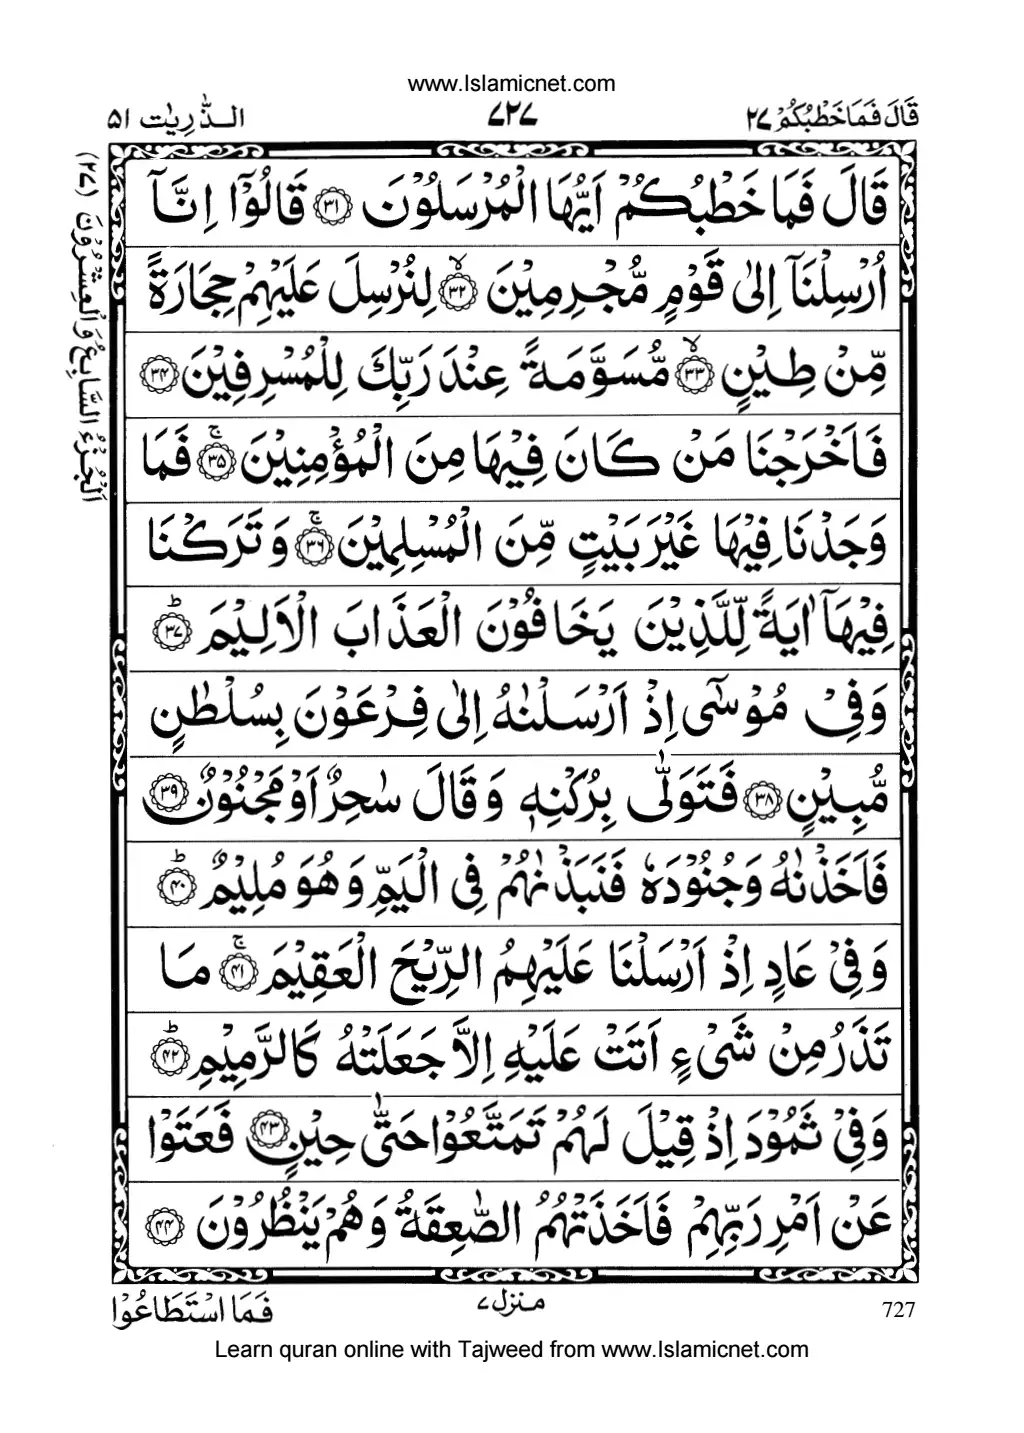 www.Islamicnet.com
قَالَ فَمَا خَطْبُكُمْ ٢٧ ٧٢٧ الـذّٰرِيٰت ٥١
قَالَ فَمَا خَطْبُكُمْ اَيُّهَا الْمُرْسَلُوْنَ ﴿٣١﴾ قَالُوْٓا اِنَّآ
اُرْسِلْنَآ اِلٰى قَوْمٍ مُّجْرِمِيْنَ ﴿٣٢﴾ۙ لِنُرْسِلَ عَلَيْهِمْ حِجَارَةً
مِّنْ طِيْنٍ ﴿٣٣﴾ۙ مُّسَوَّمَةً عِنْدَ رَبِّكَ لِلْمُسْرِفِيْنَ ﴿٣٤﴾
فَاَخْرَجْنَا مَنْ كَانَ فِيْهَا مِنَ الْمُؤْمِنِيْنَ ﴿٣٥﴾ۚ فَمَا
وَجَدْنَا فِيْهَا غَيْرَ بَيْتٍ مِّنَ الْمُسْلِمِيْنَ ﴿٣٦﴾ۚ وَتَرَكْنَا
فِيْهَآ اٰيَةً لِّلَّذِيْنَ يَخَافُوْنَ الْعَذَابَ الْاَلِيْمَ ﴿٣٧﴾ؕ
وَفِيْ مُوْسٰٓى اِذْ اَرْسَلْنٰهُ اِلٰى فِرْعَوْنَ بِسُلْطٰنٍ
مُّبِيْنٍ ﴿٣٨﴾ فَتَوَلّٰى بِرُكْنِهٖ وَقَالَ سٰحِرٌ اَوْ مَجْنُوْنٌ ﴿٣٩﴾
فَاَخَذْنٰهُ وَجُنُوْدَهٗ فَنَبَذْنٰهُمْ فِى الْيَمِّ وَهُوَ مُلِيْمٌ ﴿٤٠﴾ؕ
وَفِيْ عَادٍ اِذْ اَرْسَلْنَا عَلَيْهِمُ الرِّيْحَ الْعَقِيْمَ ﴿٤١﴾ۚ مَا
تَذَرُ مِنْ شَيْءٍ اَتَتْ عَلَيْهِ اِلَّا جَعَلَتْهُ كَالرَّمِيْمِ ﴿٤٢﴾ؕ
وَفِيْ ثَمُوْدَ اِذْ قِيْلَ لَهُمْ تَمَتَّعُوْا حَتّٰى حِيْنٍ ﴿٤٣﴾ فَعَتَوْا
عَنْ اَمْرِ رَبِّهِمْ فَاَخَذَتْهُمُ الصّٰعِقَةُ وَهُمْ يَنْظُرُوْنَ ﴿٤٤﴾
اَلْجُزْءُ السَّابِعُ وَالْعِشْرُوْنَ (٢٧)
727 منزل ٧ فَمَا اسْتَطَاعُوْا
Learn quran online with Tajweed from www.Islamicnet.com